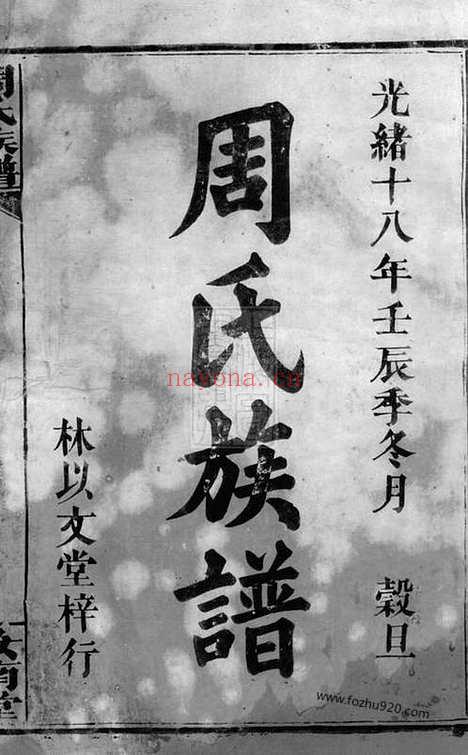 光緒十八年壬辰季冬月 穀旦
周氏族譜
林以文堂梓行
周氏族譜
汝南堂
navona.cn
www.fozhu920.com